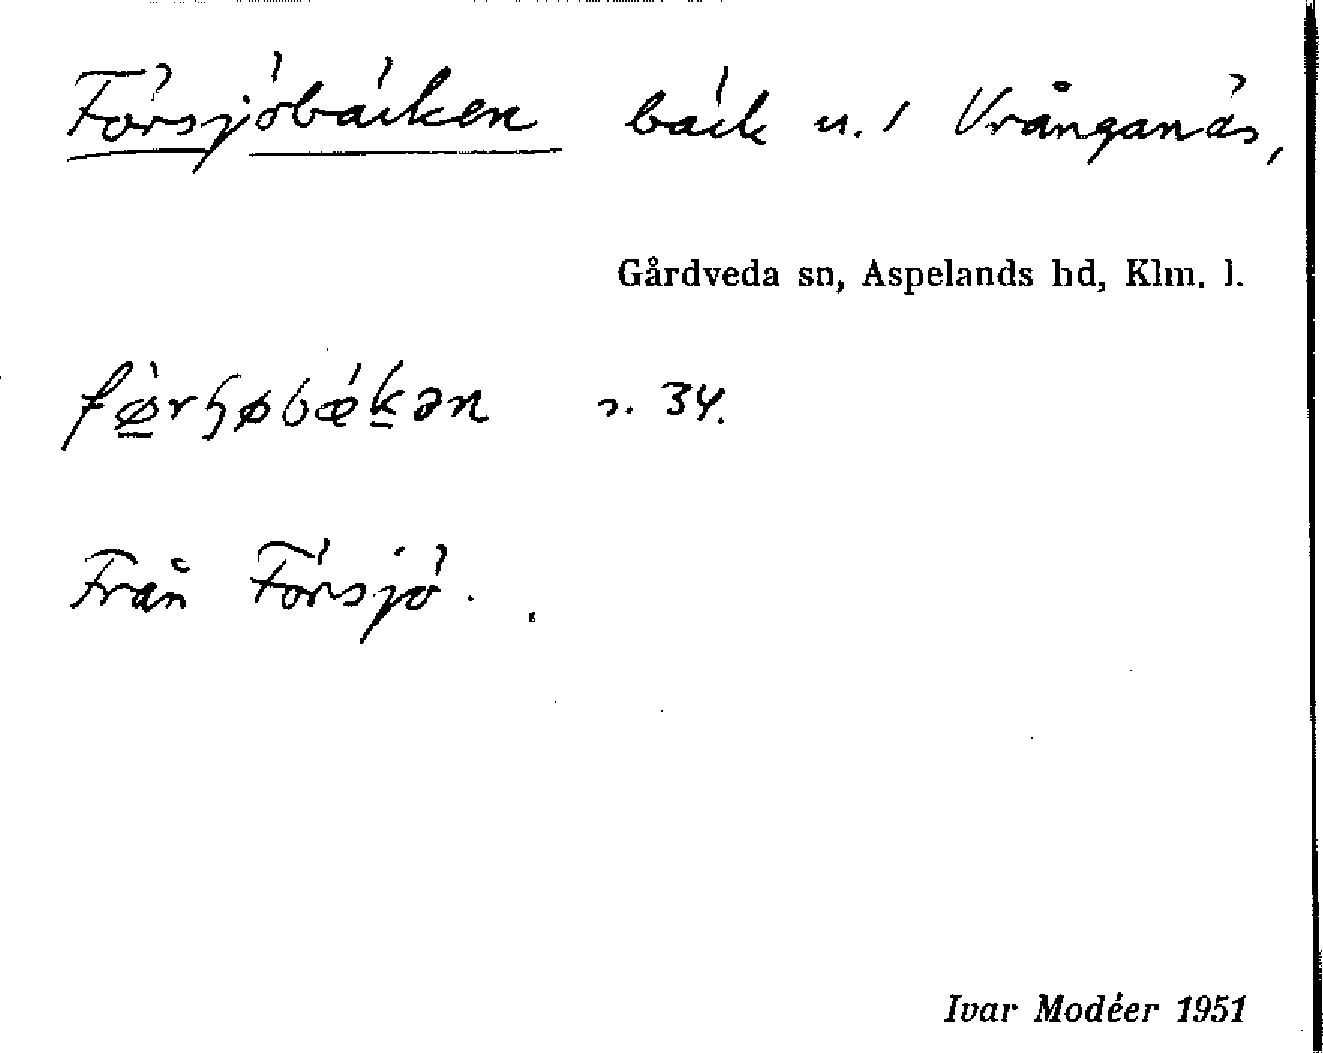 Försjöbäcken bäck u. / Vrånganäs,
Gårdveda sn, Aspelands hd, Klm. l.
fø̀rɧøbǽkən s. 34.
Från Försjö.
Ivar Modéer 1951